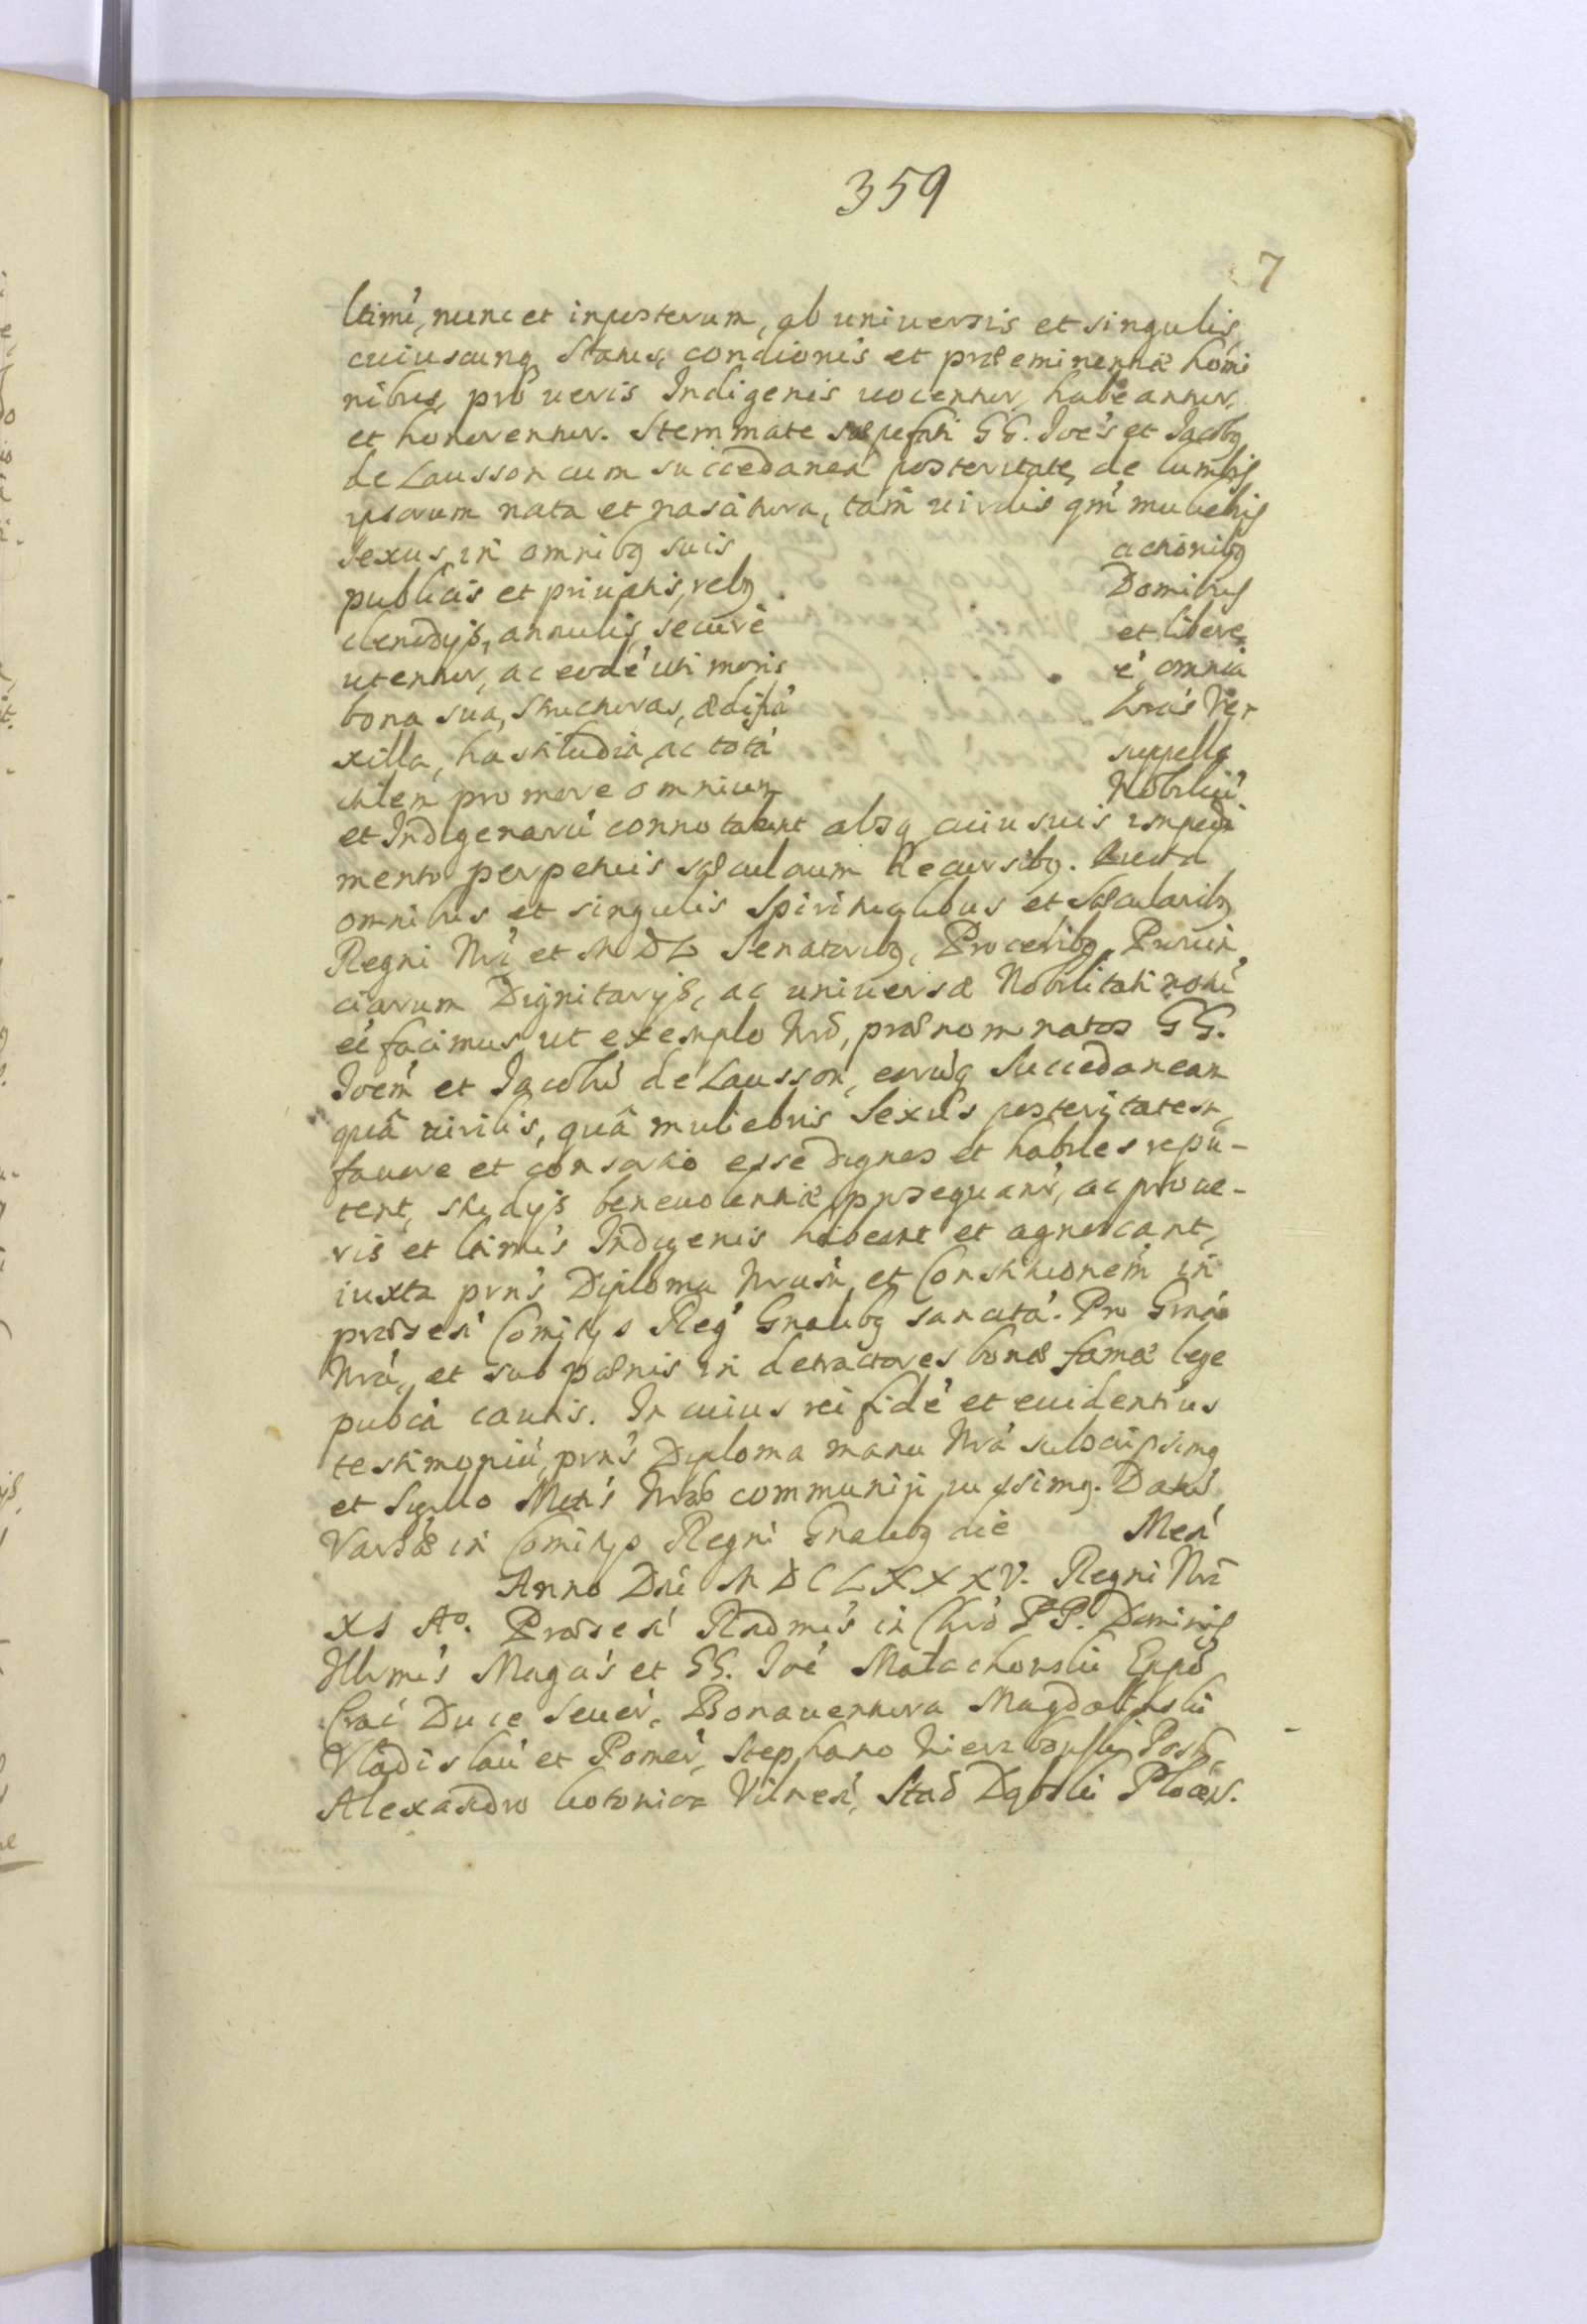 359
7
ltimé, nunc et inposterum, ab universis et singulis,
cuiuscunq Status, condionis et præeminentiæ homi
nibus, pro veris Indigenis vocentur, habeantur,
et honorentur. Stemmate sæpefati GG. Joés et Jacobg
de Lausson cum succedanea posteritate, de lumbis
ipsorum nata et nascitura, tam virilis qm muliebris
sexus, in omnibg suis actionibg
publicis et privatis, rebg Domibus
clenodijs, annulis, securè et liberè
utentur, ac eodé uti moris é, omnia
bona sua, Structuras, ædifia hrás Ve
xilla, hastiludia, ac totá suppelle
ctilem pro more omnium Nobiliú
et Indigenarú connotabunt absq cuiusvis impedi
mento perpetuis sæculorum Recursibg.
omnibus et singulis Spiritualibus et Sæcularibg
Regni Nri et M D L Senatoribg, Proceribg, Provin
ciarum Dignitarijs, ac universæ Nobilitati notú
eé facimus, ut exemplo Nro, prænominatos GG.
Joém et Jacobú de Lausson, eorúq Succedaneam
quâ virilis, quâ muliebris Sexus posteritatem,
favore et consortio esse dignos et habiles repu-
tent, studijs benevolentiæ prosequant, ac pro ve-
ris et ltimis Indigenis habeant et agnoscant,
iuxta prns Diploma Nrum, et Constitutioném in
prodseń Comitys Reg Gnalibg sancitá. Pro Grnã
Nrá, et sub pænis in detractores bonæ famæ lege
pubcá cautis. In cuius rei fidé et evidentius
testimoniú, prns Diploma manu Nrá subscripsimg
et Sigillo communiri jussimg. Datú
Varsæ in Comitys Regni Gnalibg die Meń
Anno Dni M D C L X X X V. Regni Nri
XI Aº. Prodseń Rndmis in Chró PP. Dominis
Illrmis Magcis et GG. Joé Małachowski Eppó
Crać Duce Sever, Bonaventura Magdaliński
Vladislav et Pomer, Stephano Wierzbowski Posn.
Alexandro Kotowicz Vilneń, Stao Dąbski Plocen.